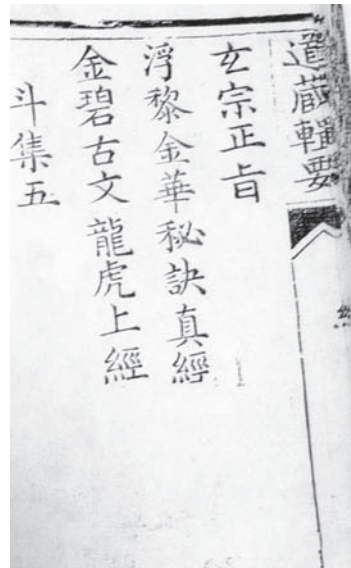 道藏輯要
玄宗正旨
浮黎金華秘訣真經
金碧古文龍虎上經
斗集五